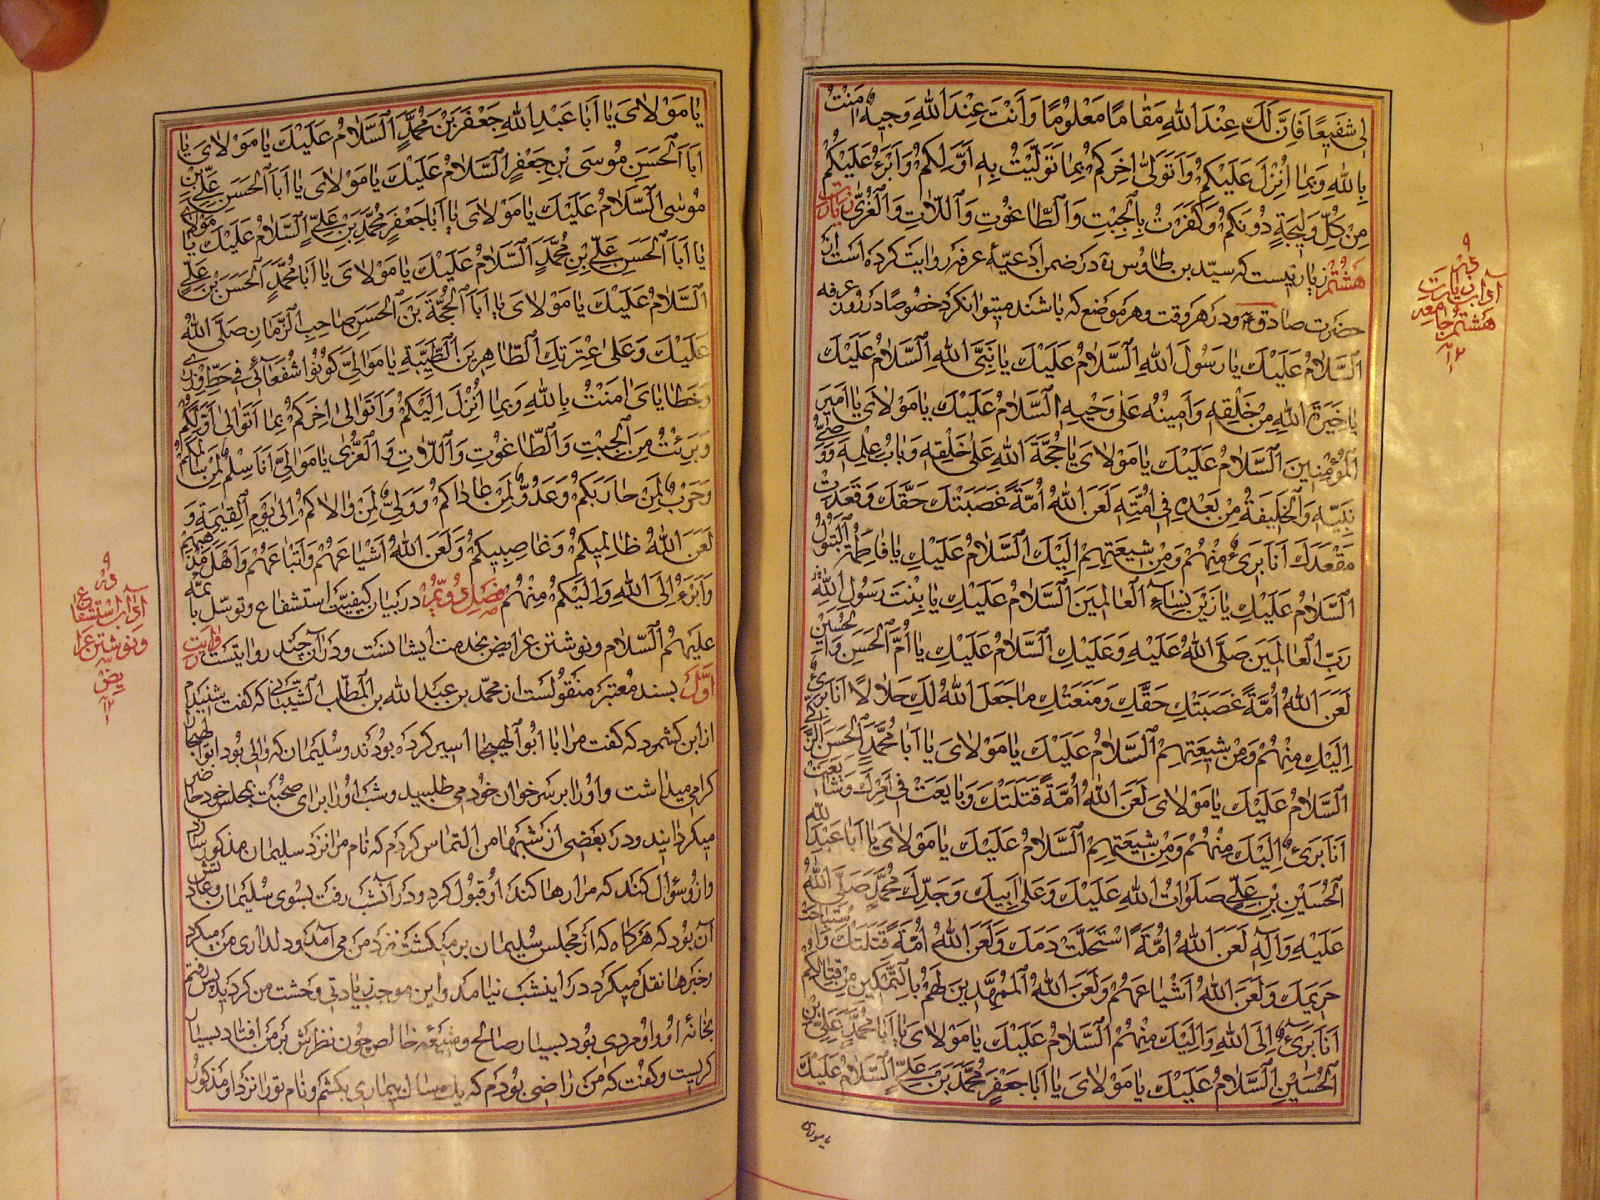 لی شَفیعًا فَاِنَّ لَكَ عِنْدَ اللّٰهِ مَقامًا مَعْلُومًا وَاَنْتَ عِنْدَ اللّٰهِ وَجیهٌ امَنْتُ
بِاللّٰهِ وَبِمٰا اُنْزِلَ عَلَیْكُمْ وَاَتَوَلّٰی اخِرَكُمْ بِمٰا تَوَلَّیْتُ بِهِ اَوَّلَكُمْ وَاَبْرَءُ عَلَیْكُمْ
مِنْ كُلِّ وَلیجَةٍ دُونَكُمْ وَكَفَرْتُ بِالْجِبْتِ وَالطّٰاغُوتِ وَاللّٰاتِ وَالْعُزّٰی زیارت
هشتم زیارتیست که سید بن طاوس ره در ضمن ادعیهٔ عرفه روایت کرده است از
حضرت صادق ع و در هر وقت و هر موضع که باشند میتوانکرد خصوصًا در روز عرفه
اَلسَّلٰامُ عَلَیْكَ یٰا رَسُولَ اللّٰهِ اَلسَّلٰامُ عَلَیْكَ یٰا نَبِیَّ اللّٰهِ اَلسَّلٰامُ عَلَیْكَ
یٰا خِیَرَةَ اللّٰهِ مِنْ خَلْقِهِ وَاَمینُهُ عَلٰی وَحْیِهِ اَلسَّلٰامُ عَلَیْكَ یٰا مَوْلٰایَ یٰا اَمیرَ
الْمُؤْمِنینَ اَلسَّلٰامُ عَلَیْكَ یٰا مَوْلٰایَ یٰا حُجَّةَ اللّٰهِ عَلٰی خَلْقِهِ وَبٰابَ عِلْمِهِ وَوَصِیَّ
نَبِیِّهِ وَالْخَلیفَةُ مِنْ بَعْدِهِ فی اُمَّتِهِ لَعَنَ اللّٰهُ اُمَّةً غَصَبَتْكَ حَقَّكَ وَقَعَدَتْ
مَقْعَدَكَ اَنَا بَریءٌ مِنْهُمْ وَمِنْ شیعَتِهِمْ اِلَیْكَ اَلسَّلٰامُ عَلَیْكِ یٰا فٰاطِمَةُ الْبَتُولُ
اَلسَّلٰامُ عَلَیْكِ یٰا زَیْنَ نِسٰاءِ الْعٰالَمینَ اَلسَّلٰامُ عَلَیْكِ یٰا بِنْتَ رَسُولِ اللّٰهِ
رَبِّ الْعٰالَمینَ صَلَّی اللّٰهُ عَلَیْهِ وَعَلَیْكِ اَلسَّلٰامُ عَلَیْكِ یٰا اُمَّ الْحَسَنِ وَالْحُسَیْنِ
لَعَنَ اللّٰهُ اُمَّةً غَصَبَتْكِ حَقَّكِ وَمَنَعَتْكِ مٰا جَعَلَ اللّٰهُ لَكِ حَلٰالًا اَنَا بَریءٌ
اِلَیْكِ مِنْهُمْ وَمِنْ شیعَتِهِمْ اَلسَّلٰامُ عَلَیْكَ یٰا مَوْلٰایَ یٰا اَبٰا مُحَمَّدٍ الْحَسَنِ الزَّكِیِّ
اَلسَّلٰامُ عَلَیْكَ یٰا مَوْلٰایَ لَعَنَ اللّٰهُ اُمَّةً قَتَلَتْكَ وَبٰایَعَتْ فی اَمْرِكَ وَشٰایَعَتْ
اَنَا بَریءٌ اِلَیْكَ مِنْهُمْ وَمِنْ شیعَتِهِمْ اَلسَّلٰامُ عَلَیْكَ یٰا مَوْلٰایَ یٰا اَبٰا عَبْدِ اللّٰهِ
الْحُسَیْنِ بْنِ عَلِیٍّ صَلَوٰاتُ اللّٰهِ عَلَیْكَ وَعَلٰی اَبیكَ وَجَدِّكَ مُحَمَّدٍ صَلَّی اللّٰهُ
عَلَیْهِ وَآلِهِ لَعَنَ اللّٰهُ اُمَّةً اسْتَحَلَّتْ دَمَكَ وَلَعَنَ اللّٰهُ اُمَّةً قَتَلَتْكَ وَاسْتَبٰاحَتْ
حَریمَكَ وَلَعَنَ اللّٰهُ اَشْیٰاعَهُمْ وَلَعَنَ اللّٰهُ الْمُمَهِّدینَ لَهُمْ بِالتَّمْكینِ مِنْ قِتٰالِكُمْ
اَنَا بَریءٌ اِلَی اللّٰهِ وَاِلَیْكَ مِنْهُمْ اَلسَّلٰامُ عَلَیْكَ یٰا مَوْلٰایَ یٰا اَبٰا مُحَمَّدٍ عَلِیَّ بْنَ
الْحُسَیْنِ اَلسَّلٰامُ عَلَیْكَ یٰا مَوْلٰایَ یٰا اَبٰا جَعْفَرٍ مُحَمَّدَ بْنَ عَلِیٍّ اَلسَّلٰامُ عَلَیْكَ
یا مولای
آداب زیارت
هشتم جامعه
یٰا مَوْلٰایَ یٰا اَبٰا عَبْدِ اللّٰهِ جَعْفَرَ بْنَ مُحَمَّدٍ اَلسَّلٰامُ عَلَیْكَ یٰا مَوْلٰایَ یٰا
اَبَا الْحَسَنِ مُوسَی بْنَ جَعْفَرٍ اَلسَّلٰامُ عَلَیْكَ یٰا مَوْلٰایَ یٰا اَبَا الْحَسَنِ عَلِیَّ بْنَ
مُوسٰی اَلسَّلٰامُ عَلَیْكَ یٰا مَوْلٰایَ یٰا اَبٰا جَعْفَرٍ مُحَمَّدَ بْنَ عَلِیٍّ اَلسَّلٰامُ عَلَیْكَ یٰا مَوْلٰایَ
یٰا اَبَا الْحَسَنِ عَلِیِّ بْنِ مُحَمَّدٍ اَلسَّلٰامُ عَلَیْكَ یٰا مَوْلٰایَ یٰا اَبٰا مُحَمَّدٍ الْحَسَنِ بْنِ عَلِیٍّ
اَلسَّلٰامُ عَلَیْكَ یٰا مَوْلٰایَ یٰا اَبَا الْحُجَّةِ بْنَ الْحَسَنِ صٰاحِبِ الزَّمٰانِ صَلَّی اللّٰهُ
عَلَیْكَ وَعَلٰی عِتْرَتِكَ الطّٰاهِرینَ الطَّیِّبَةِ یٰا مَوٰالِیَّ كُونُوا شُفَعٰائی فی حَطِّ وِزْری
وَخَطٰایٰایَ امَنْتُ بِاللّٰهِ وَبِمٰا اُنْزِلَ اِلَیْكُمْ وَاَتَوٰالٰی اخِرَكُمْ بِمٰا اَتَوٰالٰی اَوَّلَكُمْ
وَبَرِئْتُ مِنَ الْجِبْتِ وَالطّٰاغُوتِ وَاللّٰاتِ وَالْعُزّٰی یٰا مَوٰالِیَّ اَنَا سِلْمٌ لِمَنْ سٰالَمَكُمْ
وَحَرْبٌ لِمَنْ حٰارَبَكُمْ وَعَدُوٌّ لِمَنْ عٰادٰاكُمْ وَوَلِیٌّ لِمَنْ وٰالٰاكُمْ اِلٰی یَوْمِ الْقِیٰمَةِ وَ
لَعَنَ اللّٰهُ ظٰالِمیكُمْ وَغٰاصِبیكُمْ وَلَعَنَ اللّٰهُ اَشْیٰاعَهُمْ وَاَتْبٰاعَهُمْ وَاَهْلَ مَذْهَبِهِمْ
وَاَبْرَءُ اِلَی اللّٰهِ وَاِلَیْكُمْ مِنْهُمْ فصل دویم در بیان کیفیت استشفاع و توسل بائمه
علیهم السلام و نوشتن عرایض بخدمت ایشانست و در آن چند روایتست روایت
اول بسند معتبر منقولست از محمد بن عبدالله بن المطلب الشیبانی که گفت شنیدم
از ابن کشمرد که گفت مرا با ابو الهیجا اسیر کرده بودند و سلیمان که والی بود ابو الهیجا
گرامی میداشت و او را بر سر خوان خود می طلبید و شب او را برای صحبت بمجلس خود حاضر
میگردانید و در بعضی از شبها من التماس کردم که نام مرا نزد سلیمان مذکور سازد
و ازو سؤال کند که مرا رها کند او قبول کرد و در آنشب رفت بسوی سلیمان و عادتش
آن بود که هرگاه که از مجلس سلیمان بر میگشت نزد من می آمد و دلداری من میکرد
و خبرها نقل میکرد در اینشب نیامد و این موجب زیادتی وحشت من گردید پس رفتم
بخانهٔ او و او مردی بود بسیار صالح و شیعهٔ خالص چون نظرش بر من افتاد بسیار
گریست و گفت که من راضی بودم که یك سال بیماری بکشم و نام تو را نزد او مذکور
آداب استشفاع
و نوشتن عرا
یض